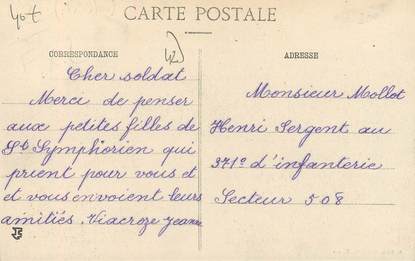 40t
CARTE POSTALE
42
CORRESPONDANCE
Cher soldat
Merci de penser
aux petites filles de
St Symphorien qui
prient pour vous et
et vous envoient leurs
amitiés. Viacroze Jeanne
ADRESSE
Monsieur Mollot
Henri Sergent au
371e d'infanterie
Secteur 508